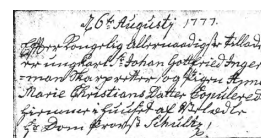 d 6t Augustj 1777.
Efter Kongelig allernaadigste tillad
er ungkarl Sr Johan Gotfried Inger
-man Skarpretter og Pigen Anne
Marie Christians Datter Copulered
hiemme i huuset af Sl
Hr Dom Provst Schultz